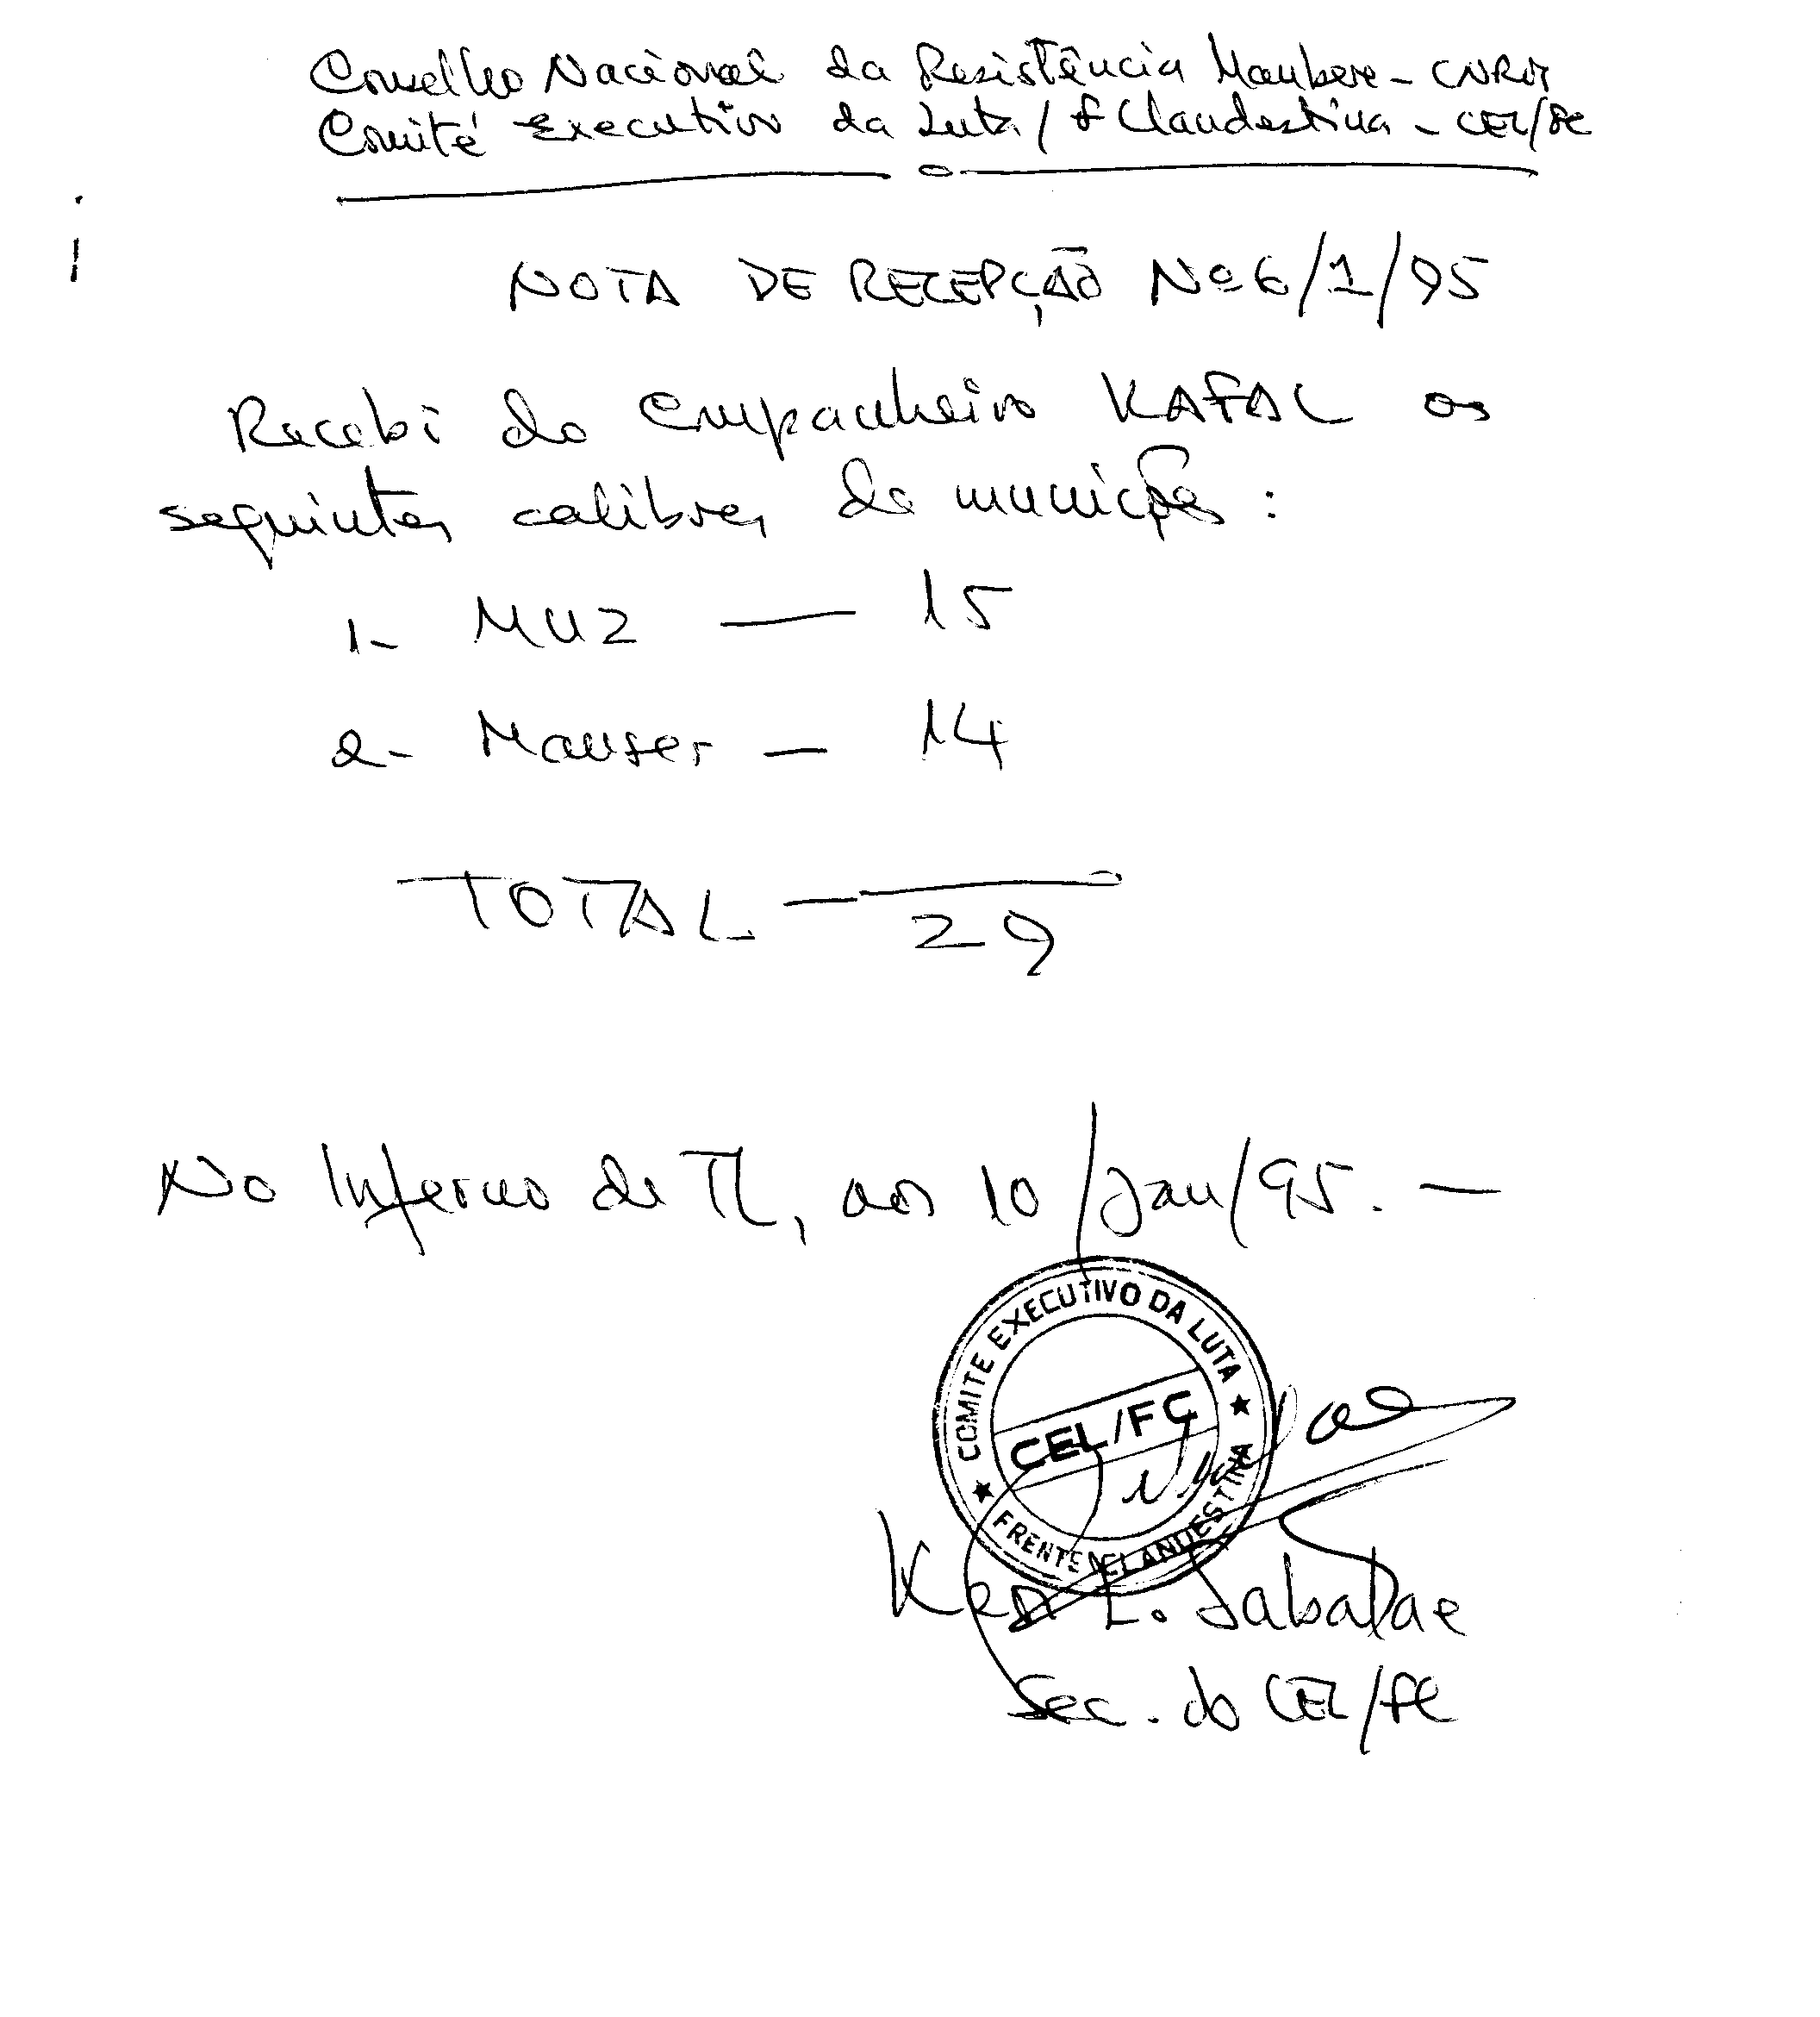 Conselho Nacional da Resistência Maubere - CNRM
Comité Executivo da Luta / F Clandestina - CEL/FC
NOTA DE RECEPÇÃO Nº 6/1/95
Recebi do companheiro KAFAL os
seguintes calibres de munições :
1- MUZ — 15
2- Mauser — 14
TOTAL — 29
No Inferno de TL, aos 10/Jan/95. —
COMITE EXECUTIVO DA LUTA
CEL/FC
FRENTE CLANDESTINA
L. Sabalae
Sec. do CEL/FC